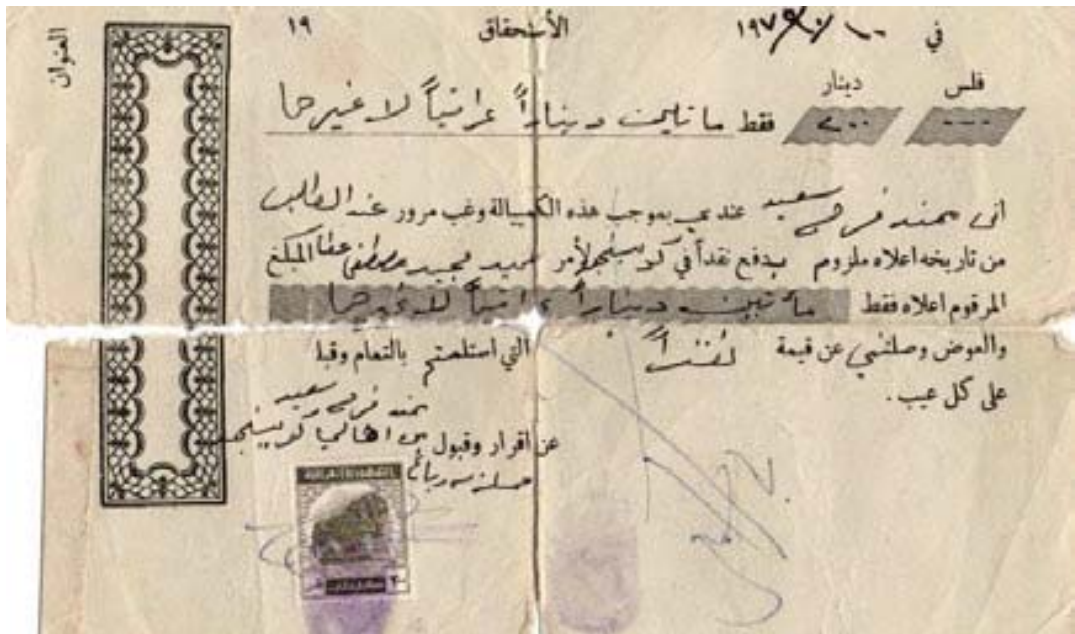 العنوان
في ١٩٧
الأستحقاق ١٩
فلس دينار
٠٠٠ ٢٠٠ فقط مأتين ديناراً عراقياً لا غيرها
اني محمد فرج سعيد عندي بموجب هذه الكمبيالة وغب مرور عند الطلب
من تاريخه اعلاه ملزوم بدفع نقداً في كويسنجق لأمر حميد مجيد مصطفى عطا المبلغ
المرقوم اعلاه فقط مأتين ديناراً عراقياً لا غيرها
والعوض وصلتني عن قيمة نقداً التي استلمتم بالتمام وقبلا
على كل عيب .
فرج سعيد
عن اقرار وقبول من اهالي كويسنجق
محلة